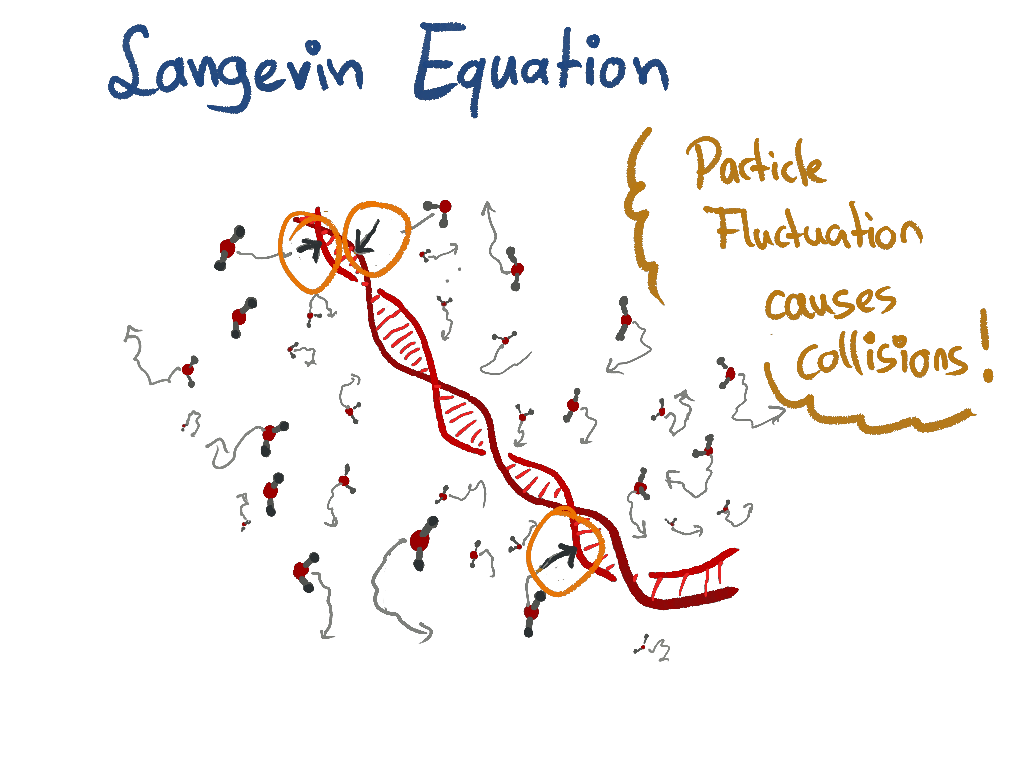 Langevin Equation
Particle
Fluctuation
causes
collisions!